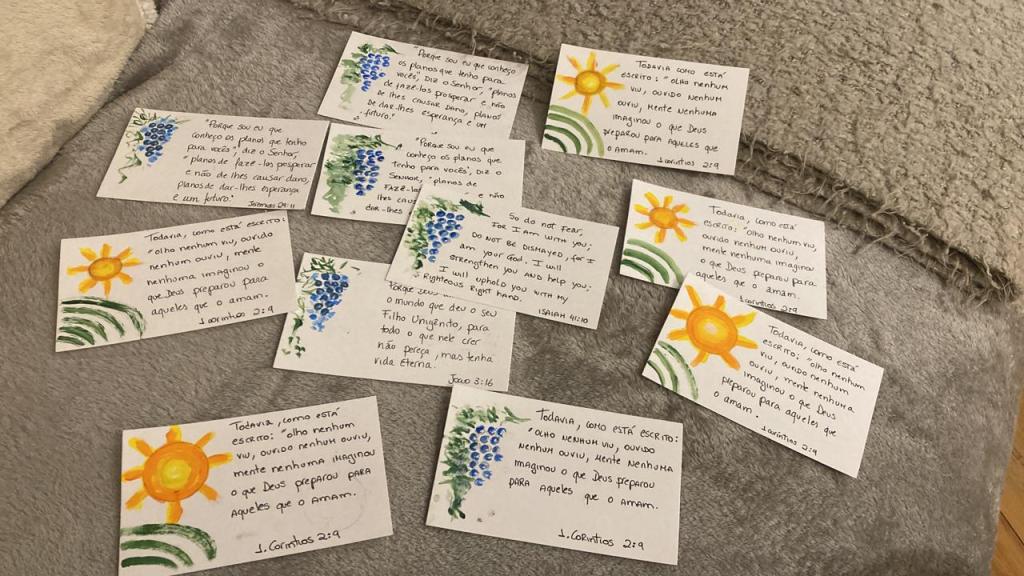 "Porque sou eu que conheço
os planos que tenho para
vocês", diz o Senhor, "planos
de fazê-los prosperar e não
de lhes causar dano, planos
de dar-lhes esperança e um
futuro."
Todavia como está
escrito: "olho nenhum
viu, ouvido nenhum
ouviu, mente nenhuma
imaginou o que Deus
preparou para aqueles que
o amam.
1 Coríntios 2:9
"Porque sou eu que
conheço os planos que tenho
para vocês", diz o Senhor,
"planos de fazê-los prosperar
e não de lhes causar dano,
planos de dar-lhes esperança
e um futuro."
Jeremias 29:11
"Porque sou eu que
conheço os planos que
tenho para vocês", diz o
Senhor, "planos de
fazê-los e não
lhes caus
dar-lhes
So do not fear,
for I am with you;
do not be dismayed, for I
am your God. I will
strengthen you and help you;
I will uphold you with my
Righteous Right hand.
ISAIAH 41:10
Todavia, como está
escrito: "olho nenhum viu,
ouvido nenhum ouviu,
mente nenhuma imaginou
o que Deus preparou para
aqueles que o amam.
1 Coríntios 2:9
Todavia, como está escrito:
"olho nenhum viu, ouvido
nenhum ouviu, mente
nenhuma imaginou o
que Deus preparou para
aqueles que o amam.
1 Coríntios 2:9
Porque
o mundo que deu o seu
Filho Unigênito, para
todo o que nele crer
não pereça, mas tenha
vida eterna.
João 3:16
Todavia, como está
escrito: "olho nenhum
viu, ouvido nenhum
ouviu, mente nenhuma
imaginou o que Deus
preparou para aqueles que
o amam.
1 Coríntios 2:9
Todavia, como está
escrito: "olho nenhum
viu, ouvido nenhum ouviu,
mente nenhuma imaginou
o que Deus preparou para
aqueles que o amam.
1. Coríntios 2:9
Todavia, como está escrito:
"olho nenhum viu, ouvido
nenhum ouviu, mente nenhuma
imaginou o que Deus preparou
para aqueles que o amam.
1. Coríntios 2:9